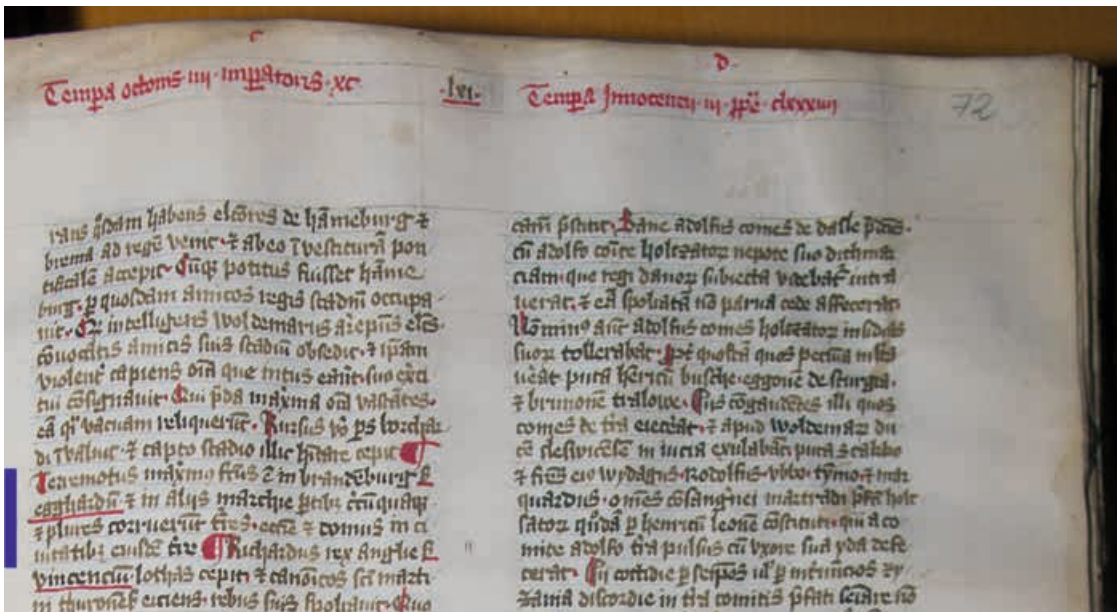 c
D.
Tempa octonis iiii impatoris xc
·lxi·
Tempa Innocencii iii ppe clxxxiiii
72
rans qsdam habens elcores de hameburg ⁊
brema ad rege venit ⁊ ab eo ivestitura pon
tificale accepit. Cuqꝫ potitus fuisset hame
burg. p quosdam amicos regis stadiu occupa
uit. Et intelligens woldemarus arepus elcs
couocatis amicis suis stadiu obsedit ⁊ ipam
violent capiens oia que intus erant suo exci
tui cosignauit. Qui pda maxima oia vastates.
ea qi vacuam reliquerut. Rursus vo ps borchar
di iualuit ⁊ capto stadio illic hitare cepit ¶
Terremotus maximo fcus e in brandeburg s
egghardu ⁊ in aliis marchie ptibꝫ ctu quaqꝫ
⁊ plures corruerut tres. eccie ⁊ domus in ci
uitatibꝫ eiusde tre ¶ Richardus rex anglie s
vincenciu lothas cepit. ⁊ canonicos sci marti
in thurones eiciens. rebus suis spoliauit. Quo
cam pstitit. Sane adolfus comes de dasle pdcus.
cu adolfo coite holtzatoꝝ nepote suo dithmar
ciam. que regi danoꝝ subiecta videbat intra
uerat. ⁊ ea spoliata no parua cede affecerat
Nominꝰ aut adolfus comes holtzatoꝝ insidias
suoꝝ tollerabat. Pt quosda quos pecuia infla
uerat puta henricu busche. eggone de sturgia.
⁊ brunone tralowe. Cuis cogaudetes illi quos
comes de tra eiecerat. ⁊ apud woldemar du
ce slesvicense in iucia exulabat. puta scakko
⁊ fres eiꝰ wydagus. Rodolfus. vbbo. tymo. ⁊ mar
quardus. omes cosanguinei marcradi pfcti holt
satoꝝ quoda p henricu leone costituti. qui a co
mite adolfo tra pulsus cu vxore sua yda dece
cerat. Hii cottidie p seipos ul p intuncios zy
zania discordie in tra comitis pfati seiare no